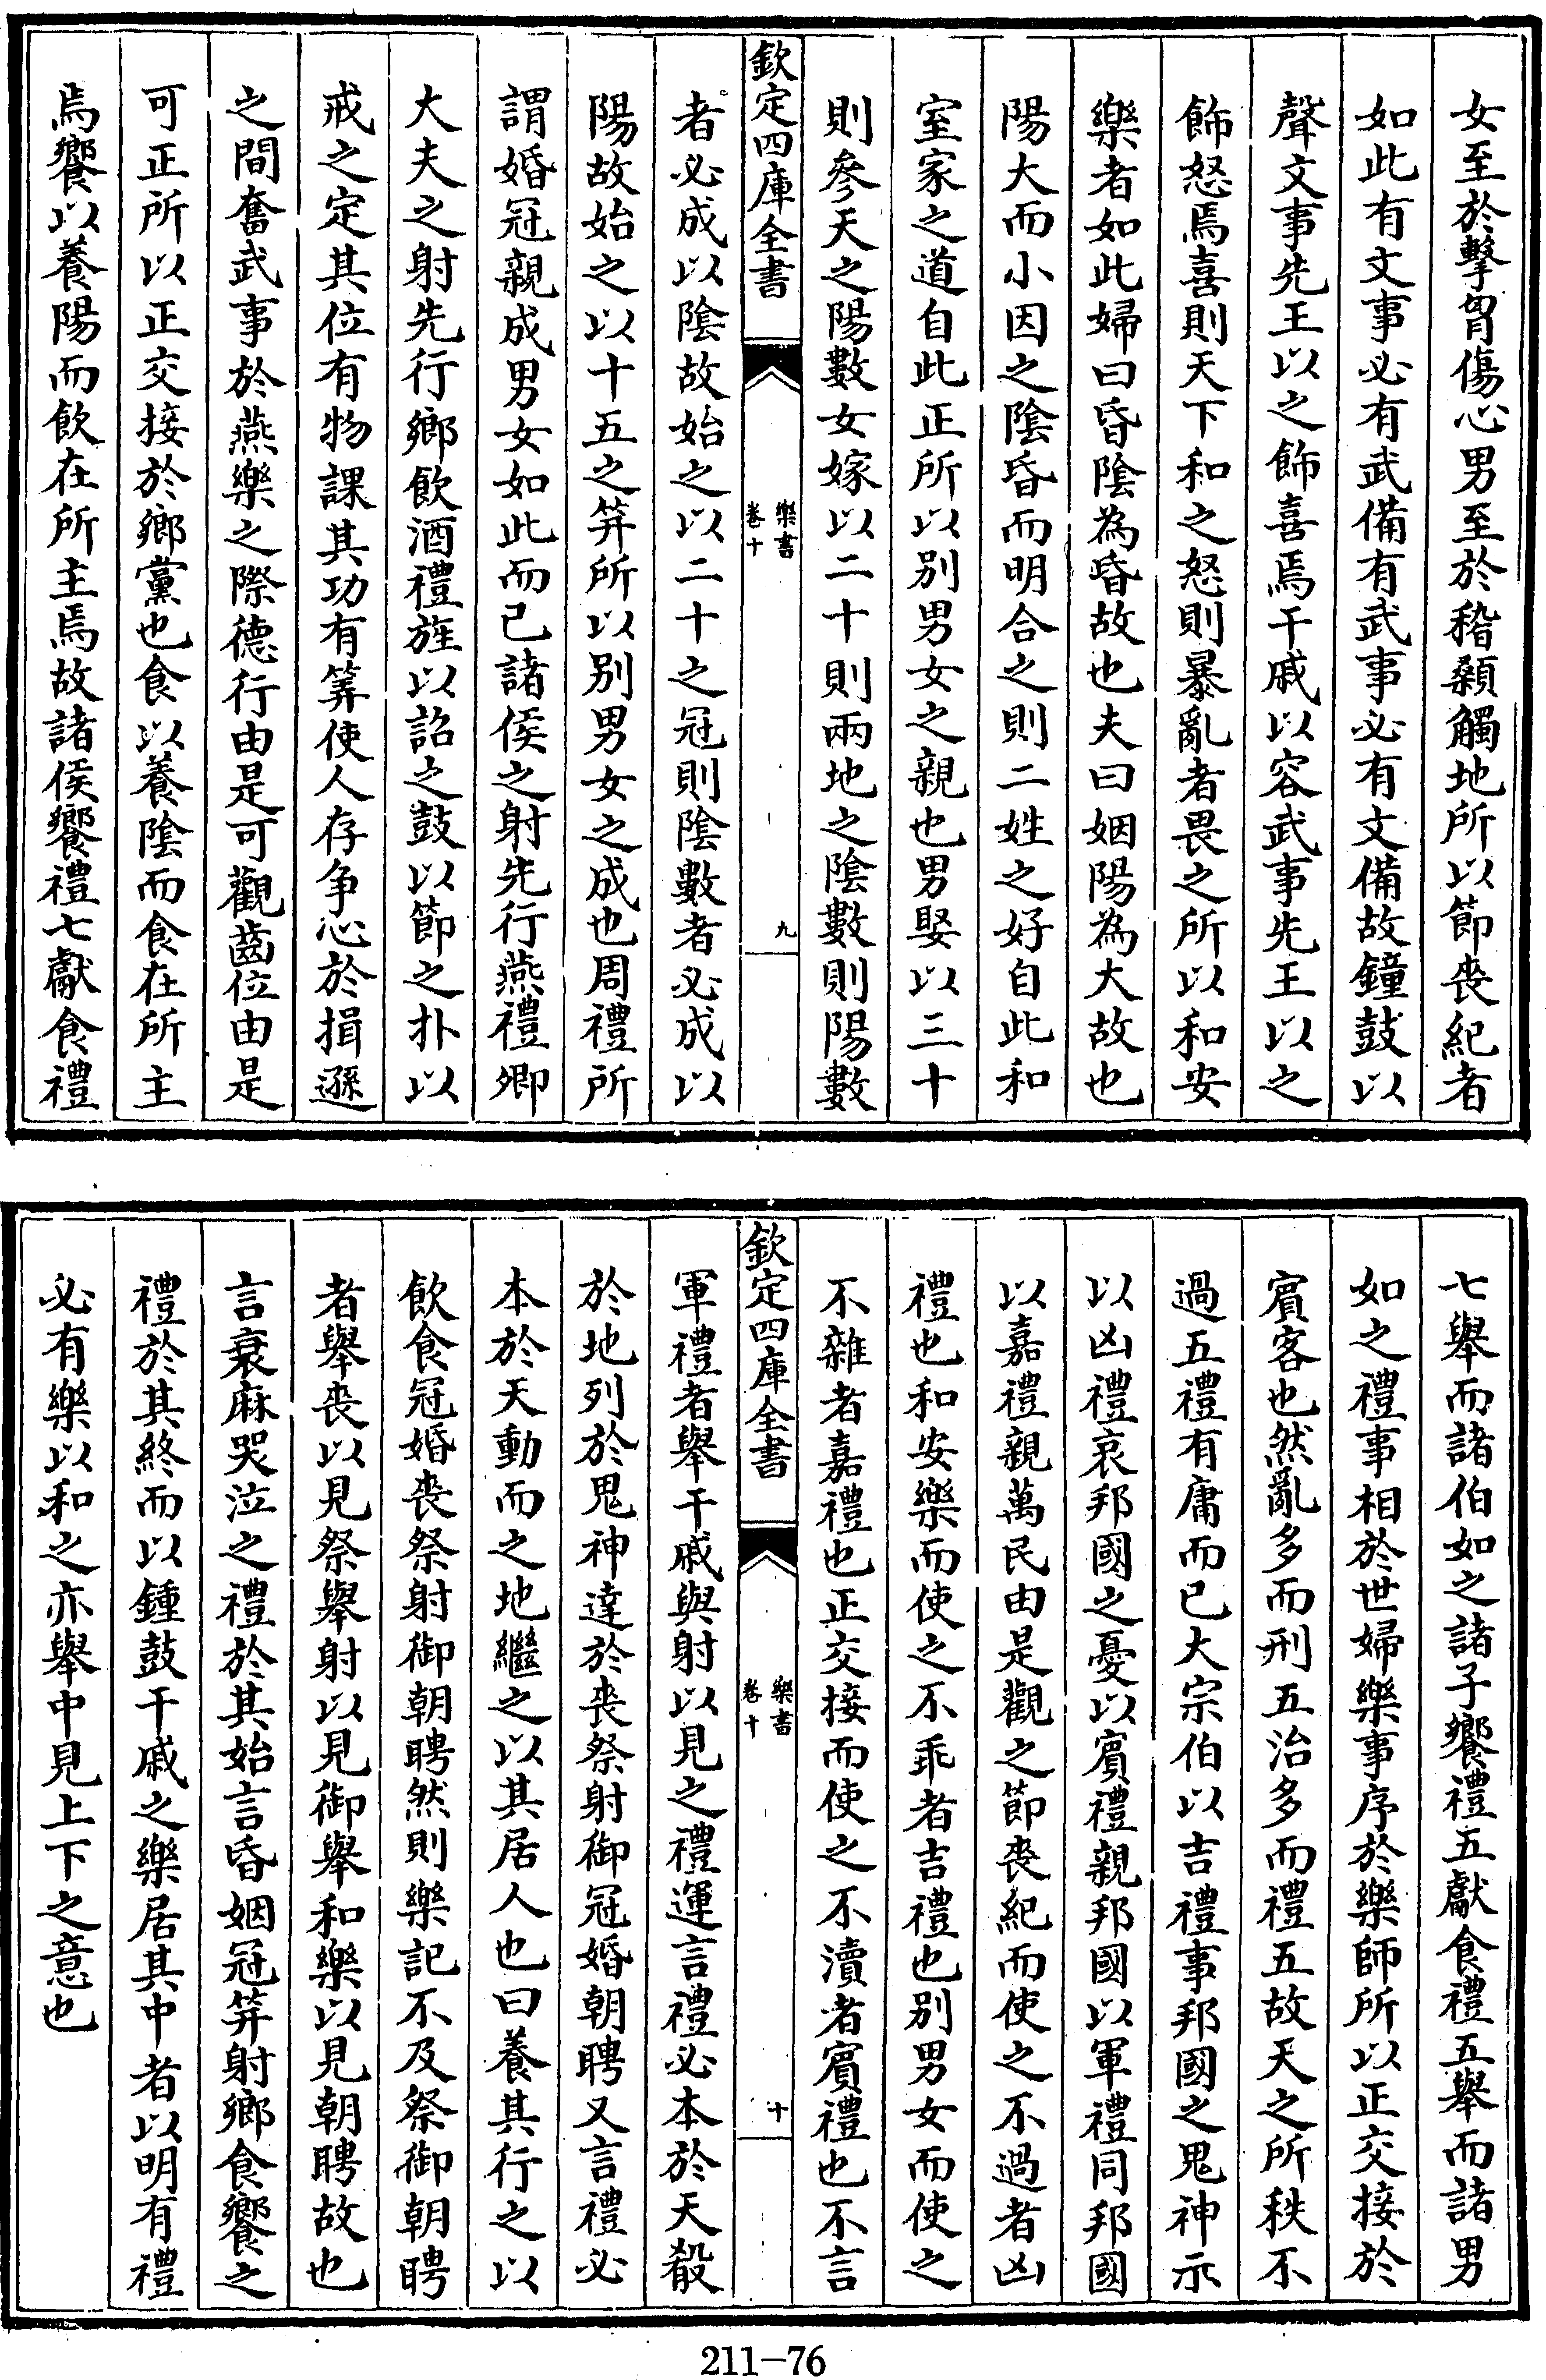 女至於擊胷傷心男至於稽顙觸地所以節喪紀者
如此有文事必有武備有武事必有文備故鐘鼓以
聲文事先王以之飾喜焉干戚以容武事先王以之
飾怒焉喜則天下和之怒則暴亂者畏之所以和安
樂者如此婦曰昏陰為昏故也夫曰姻陽為大故也
陽大而小因之陰昏而明合之則二姓之好自此和
室家之道自此正所以别男女之親也男娶以三十
則參天之陽數女嫁以二十則兩地之陰數則陽數
欽定四庫全書
樂書
卷十
九
者必成以陰故始之以二十之冠則陰數者必成以
陽故始之以十五之筓所以别男女之成也周禮所
謂婚冠親成男女如此而已諸侯之射先行燕禮卿
大夫之射先行鄉飲酒禮旌以詔之鼓以節之扑以
戒之定其位有物課其功有筭使人存争心於揖遜
之間奮武事於燕樂之際德行由是可觀齒位由是
可正所以正交接於鄉黨也食以養陰而食在所主
焉饗以養陽而飲在所主焉故諸侯饗禮七獻食禮
七舉而諸伯如之諸子饗禮五獻食禮五舉而諸男
如之禮事相於世婦樂事序於樂師所以正交接於
賓客也然亂多而刑五治多而禮五故天之所秩不
過五禮有庸而已大宗伯以吉禮事邦國之鬼神示
以凶禮哀邦國之憂以賓禮親邦國以軍禮同邦國
以嘉禮親萬民由是觀之節喪紀而使之不過者凶
禮也和安樂而使之不乖者吉禮也别男女而使之
不雜者嘉禮也正交接而使之不瀆者賓禮也不言
欽定四庫全書
樂書
卷十
十
軍禮者舉干戚與射以見之禮運言禮必本於天殽
於地列於鬼神達於喪祭射御冠婚朝聘又言禮必
本於天動而之地繼之以其居人也曰養其行之以
飲食冠婚喪祭射御朝聘然則樂記不及祭御朝聘
者舉喪以見祭舉射以見御舉和樂以見朝聘故也
言衰麻哭泣之禮於其始言昏姻冠筓射鄉食饗之
禮於其終而以鍾鼓干戚之樂居其中者以明有禮
必有樂以和之亦舉中見上下之意也
211-76